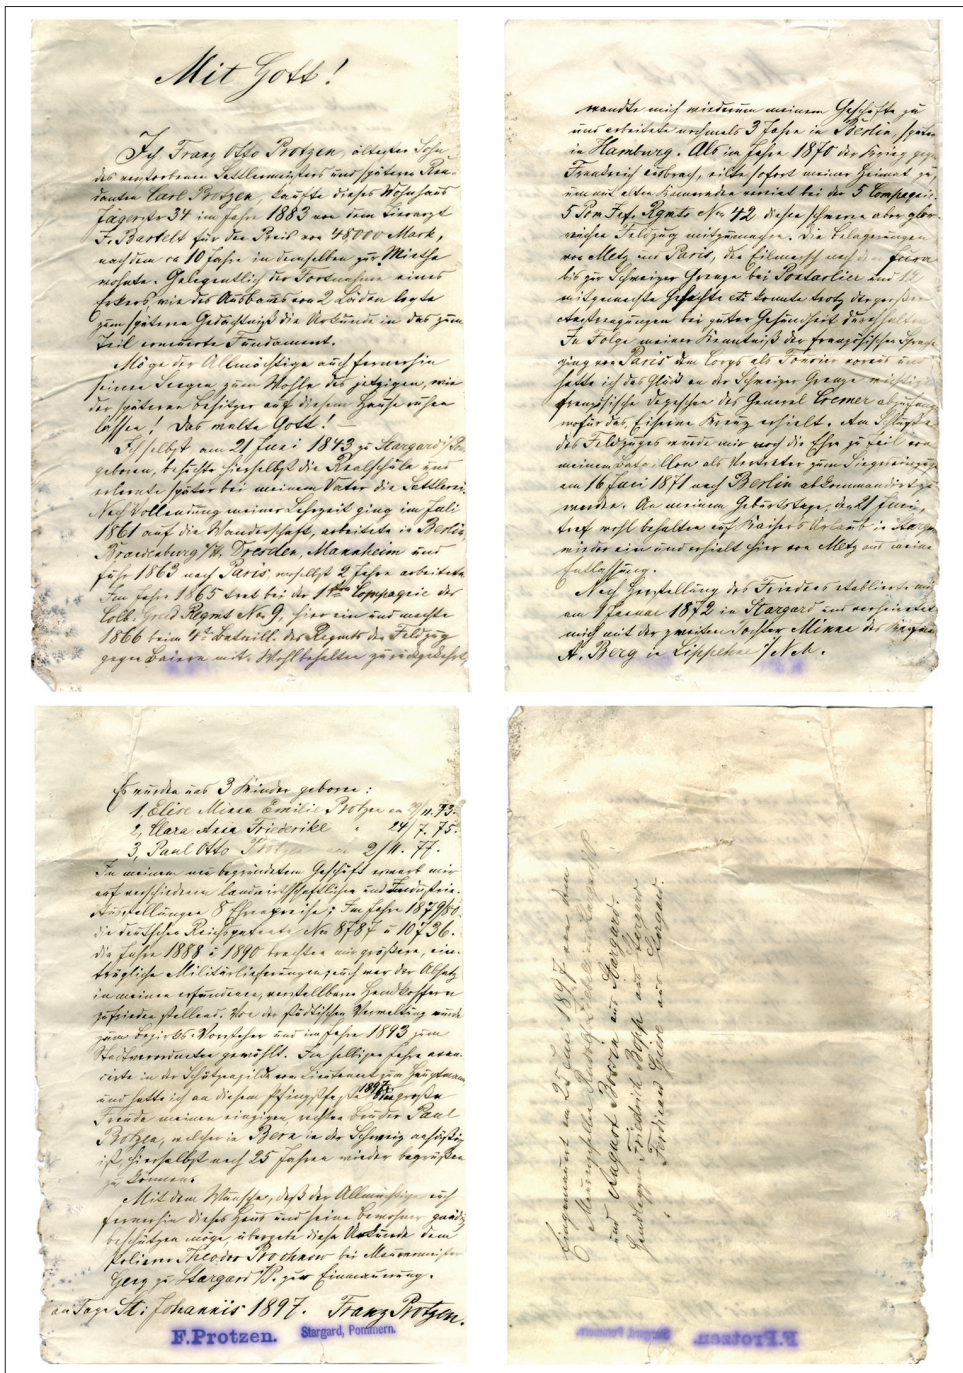 Mit Gott!
Ich Franz Otto Protzen, ältester Sohn
des verstorbenen Sattlermeisters und späteren Ren-
danten Carl Protzen, kaufte dieses Wohnhaus
Jägerstr 34 im Jahre 1883 von dem Tierarzt
F. Bartelt für den Preis von 48,000 Mark,
nachdem ca 10 Jahre in demselben zur Miethe
wohnte. Gelegentlich der Fortnahme eines
Erkers, wie des Ausbaus von 2 Läden legte
zum späteren Gedächtniß die Urkunde in das zum
Teil erneuerte Fundament.
Möge der Allmächtige auch fernerhin
seinen Seegen zum Wohle des jetzigen, wie
der späteren Besitzer auf diesem Hause ruhen
lassen! Das walte Gott!
Ich selbst am 21 Juni 1843 zu Stargard i/Po
geboren, besuchte hierselbst die Realschule und
erlernte später bei meinem Vater die Sattlerei.
Nach Vollendung meiner Lehrzeit ging im Juli
1861 auf die Wanderschaft, arbeitete in Berlin,
Brandenburg a/H. Dresden, Mannheim und
fuhr 1863 nach Paris woselbst 2 Jahre arbeitete
Im Jahre 1865 trat bei der 11ten Compagnie des
Colb. Gren. Regmt No 9, hier ein und machte
1866 beim 4t. Bataill. des Regmts den Feldzug
gegen Baiern mit. Wohlbehalten zurückgekehrt,
wandte mich wiederum meinem Geschäfte zu
und arbeitete nochmals 3 Jahre in Berlin, später
in Hamburg. Als im Jahre 1870 der Krieg gegen
Frankreich ausbrach, eilte sofort meiner Heimat zu,
um mit alten Kameraden vereint bei der 5 Compagnie
5 Pom. Inf. Regmts No 42 diesen schweren aber glor-
reichen Feldzug mitzumachen. Die Belagerungen
von Metz und Paris, den Eilmarsch nach dem Jura
bis zur Schweizer Grenze bei Pontarlier und 12
mitgemachte Gefechte etc konnte trotz der großen
Anstrengungen bei guter Gesundheit durchhalten.
In Folge meiner Kenntniß der französischen Sprache
ging von Paris dem Corps als Fourier voraus und
hatte ich das Glück an der Schweizer Grenze wichtige
französische Depeschen des General Cremer abzufangen
wofür das Eiserne Kreuz erhielt. Am Schluße
des Feldzuges wurde mir noch die Ehre zu teil von
meinem Bataillon als Vertreter zum Siegeseinzuge
am 16 Juni 1871 nach Berlin abkommandirt zu
werden. An meinem Geburtstage, am 21 Juni,
traf wohl behalten auf Kaisers Urlaub in Stargard
wieder ein und erhielt hier von Metz aus meine
Entlassung.
Nach Herstellung des Friedens etablierte mich
am 1 Januar 1872 in Stargard und verheiratete
mich mit der zweiten Tochter Minna des
A. Berg in Lippehne N/M.
Es wurden uns 3 Kinder geboren:
1, Elise Minna Emilie Protzen am 29/11. 73.
2, Clara Anna Friederike " 24/7. 75.
3, Paul Otto Protzen am 2/11. 77.
In meinem neu begründeten Geschäft erwarb mir
auf verschiedenen landwirthschaftlichen und Industrie-
Ausstellungen 8 Ehrenpreise; Im Jahre 1879/80
die deutschen Reichspatente No 8787 u 10736.
die Jahre 1888 u 1890 brachten mir größere, ein-
trägliche Militärlieferungen, auch war der Absatz
in meinen erfundenen, verstellbaren Handkoffern
zufrieden stellend. Von der städtischen Verwaltung wurde
zum Bezirks-Vorsteher und im Jahre 1893 zum
Stadtverordneten gewählt. Im selbigen Jahre avan-
cirte in der Schützengilde vom Lieutenant zum Hauptmann
und hatte ich an diesem Pfingstfeste 1897 die große
Freude meinen einzigen, rechten Bruder Paul
Protzen, welcher in Bern in der Schweiz ansässig
ist, hierselbst nach 25 Jahren wieder begrüßen
zu können.
Mit dem Wunsche, daß der Allmächtige auch
fernerhin dieses Haus und seine Bewohner gnädig
beschützen möge, übergebe diese Urkunde dem
Polierer Theodor Prochnow bei Maurermeister
Gerg zu Stargard i/P. zur Einmauerung.
am Tage St: Johannis 1897. Franz Protzen.
F.Protzen. Stargard, Pommern.
Eingemauert am 25 Juni 1897 von den
Maurergesellen Rudolf
und August Bosein aus Stargard.
Handlanger Friedrich Bopp aus Stargard
" Ferdinand Giere aus Stargard.